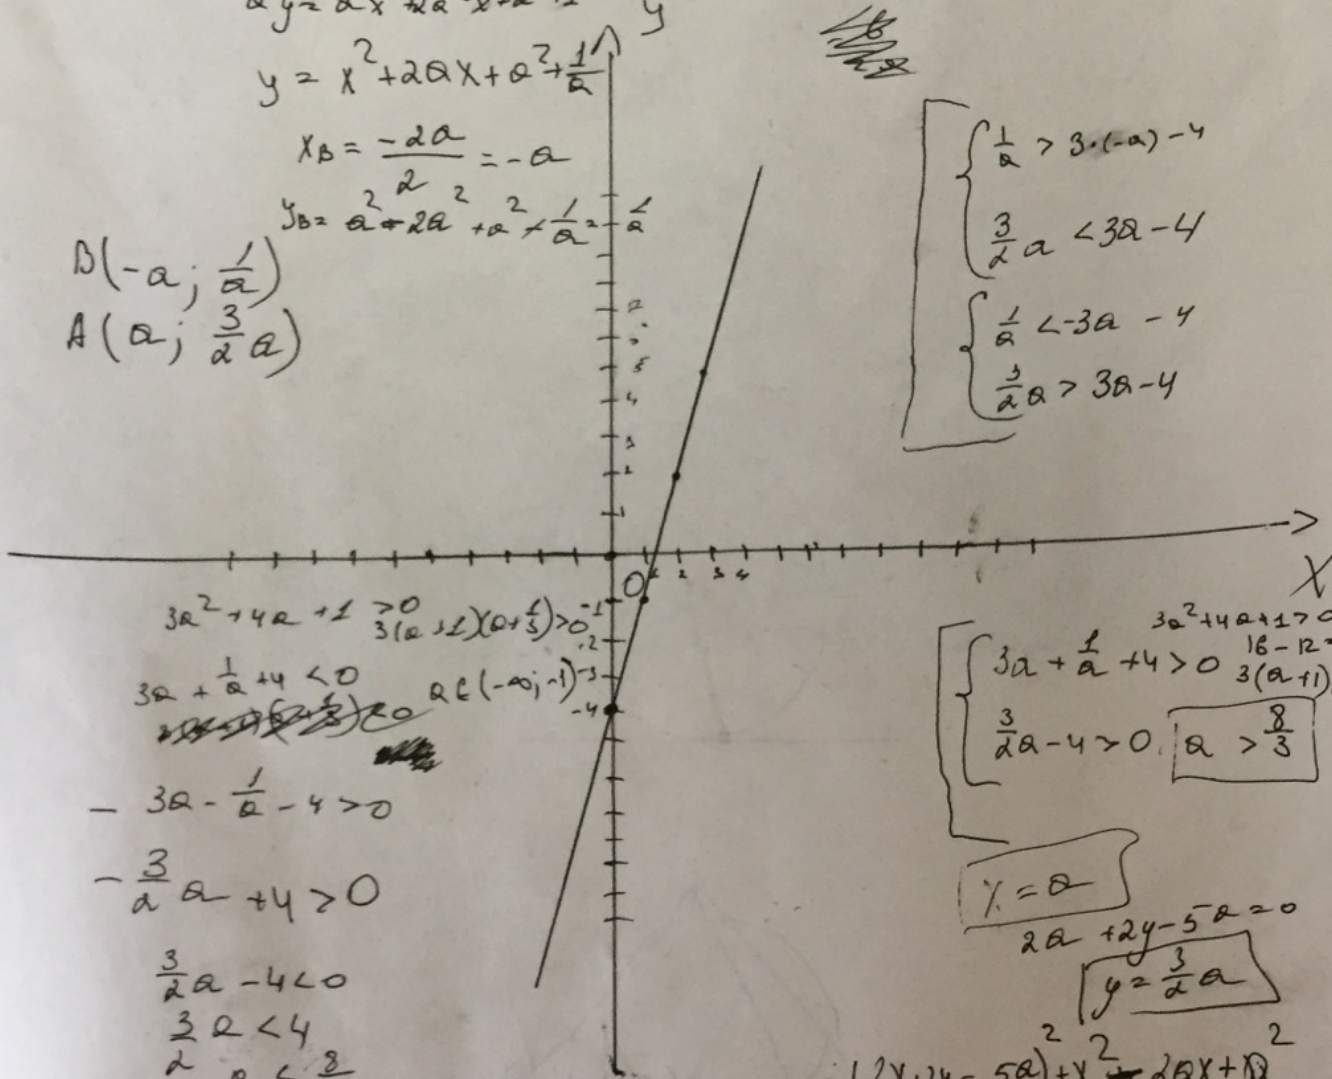 y = x² + 2ax + a² + 1/a
y
x_B = -2a/2 = -a
y_B = a² - 2a² + a² + 1/a = 1/a
B(-a; 1/a)
A(a; 3/2 a)
1/a > 3·(-a) - 4
3/2 a < 3a - 4
1/a < -3a - 4
3/2 a > 3a - 4
7
5
4
3
1
0
2 3 4
X
-1
-2
-3
-4
3a² + 4a + 1 > 0
3(a+1)(a+1/3) > 0
3a + 1/a + 4 < 0
a ∈ (-∞; -1)
- 3a - 1/a - 4 > 0
- 3/2 a + 4 > 0
3/2 a - 4 < 0
3/2 a < 4
3a² + 4a + 1 > 0
16 - 12 =
3(a+1)
3a + 1/a + 4 > 0
3/2 a - 4 > 0
a > 8/3
x = a
2a + 2y - 5a = 0
y = 3/2 a